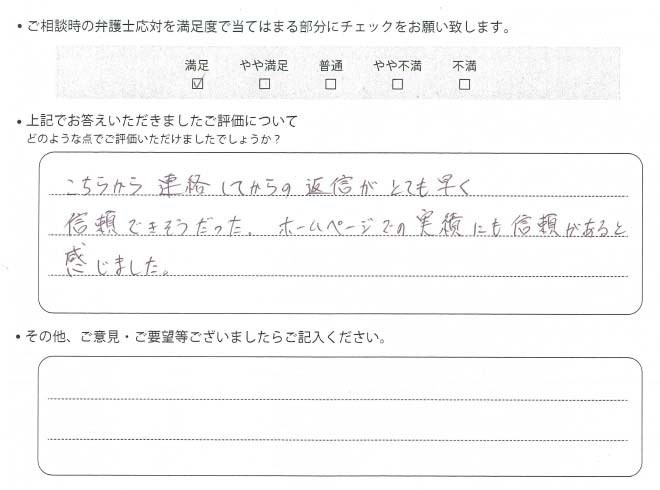 • ご相談時の弁護士応対を満足度で当てはまる部分にチェックをお願い致します。
満足 やや満足 普通 やや不満 不満
☑ ☐ ☐ ☐ ☐
• 上記でお答えいただきましたご評価について
どのような点でご評価いただけましたでしょうか？
こちらから連絡してからの返信がとても早く
信頼できそうだった。ホームページでの実績にも信頼があると
感じました。
• その他、ご意見・ご要望等ございましたらご記入ください。